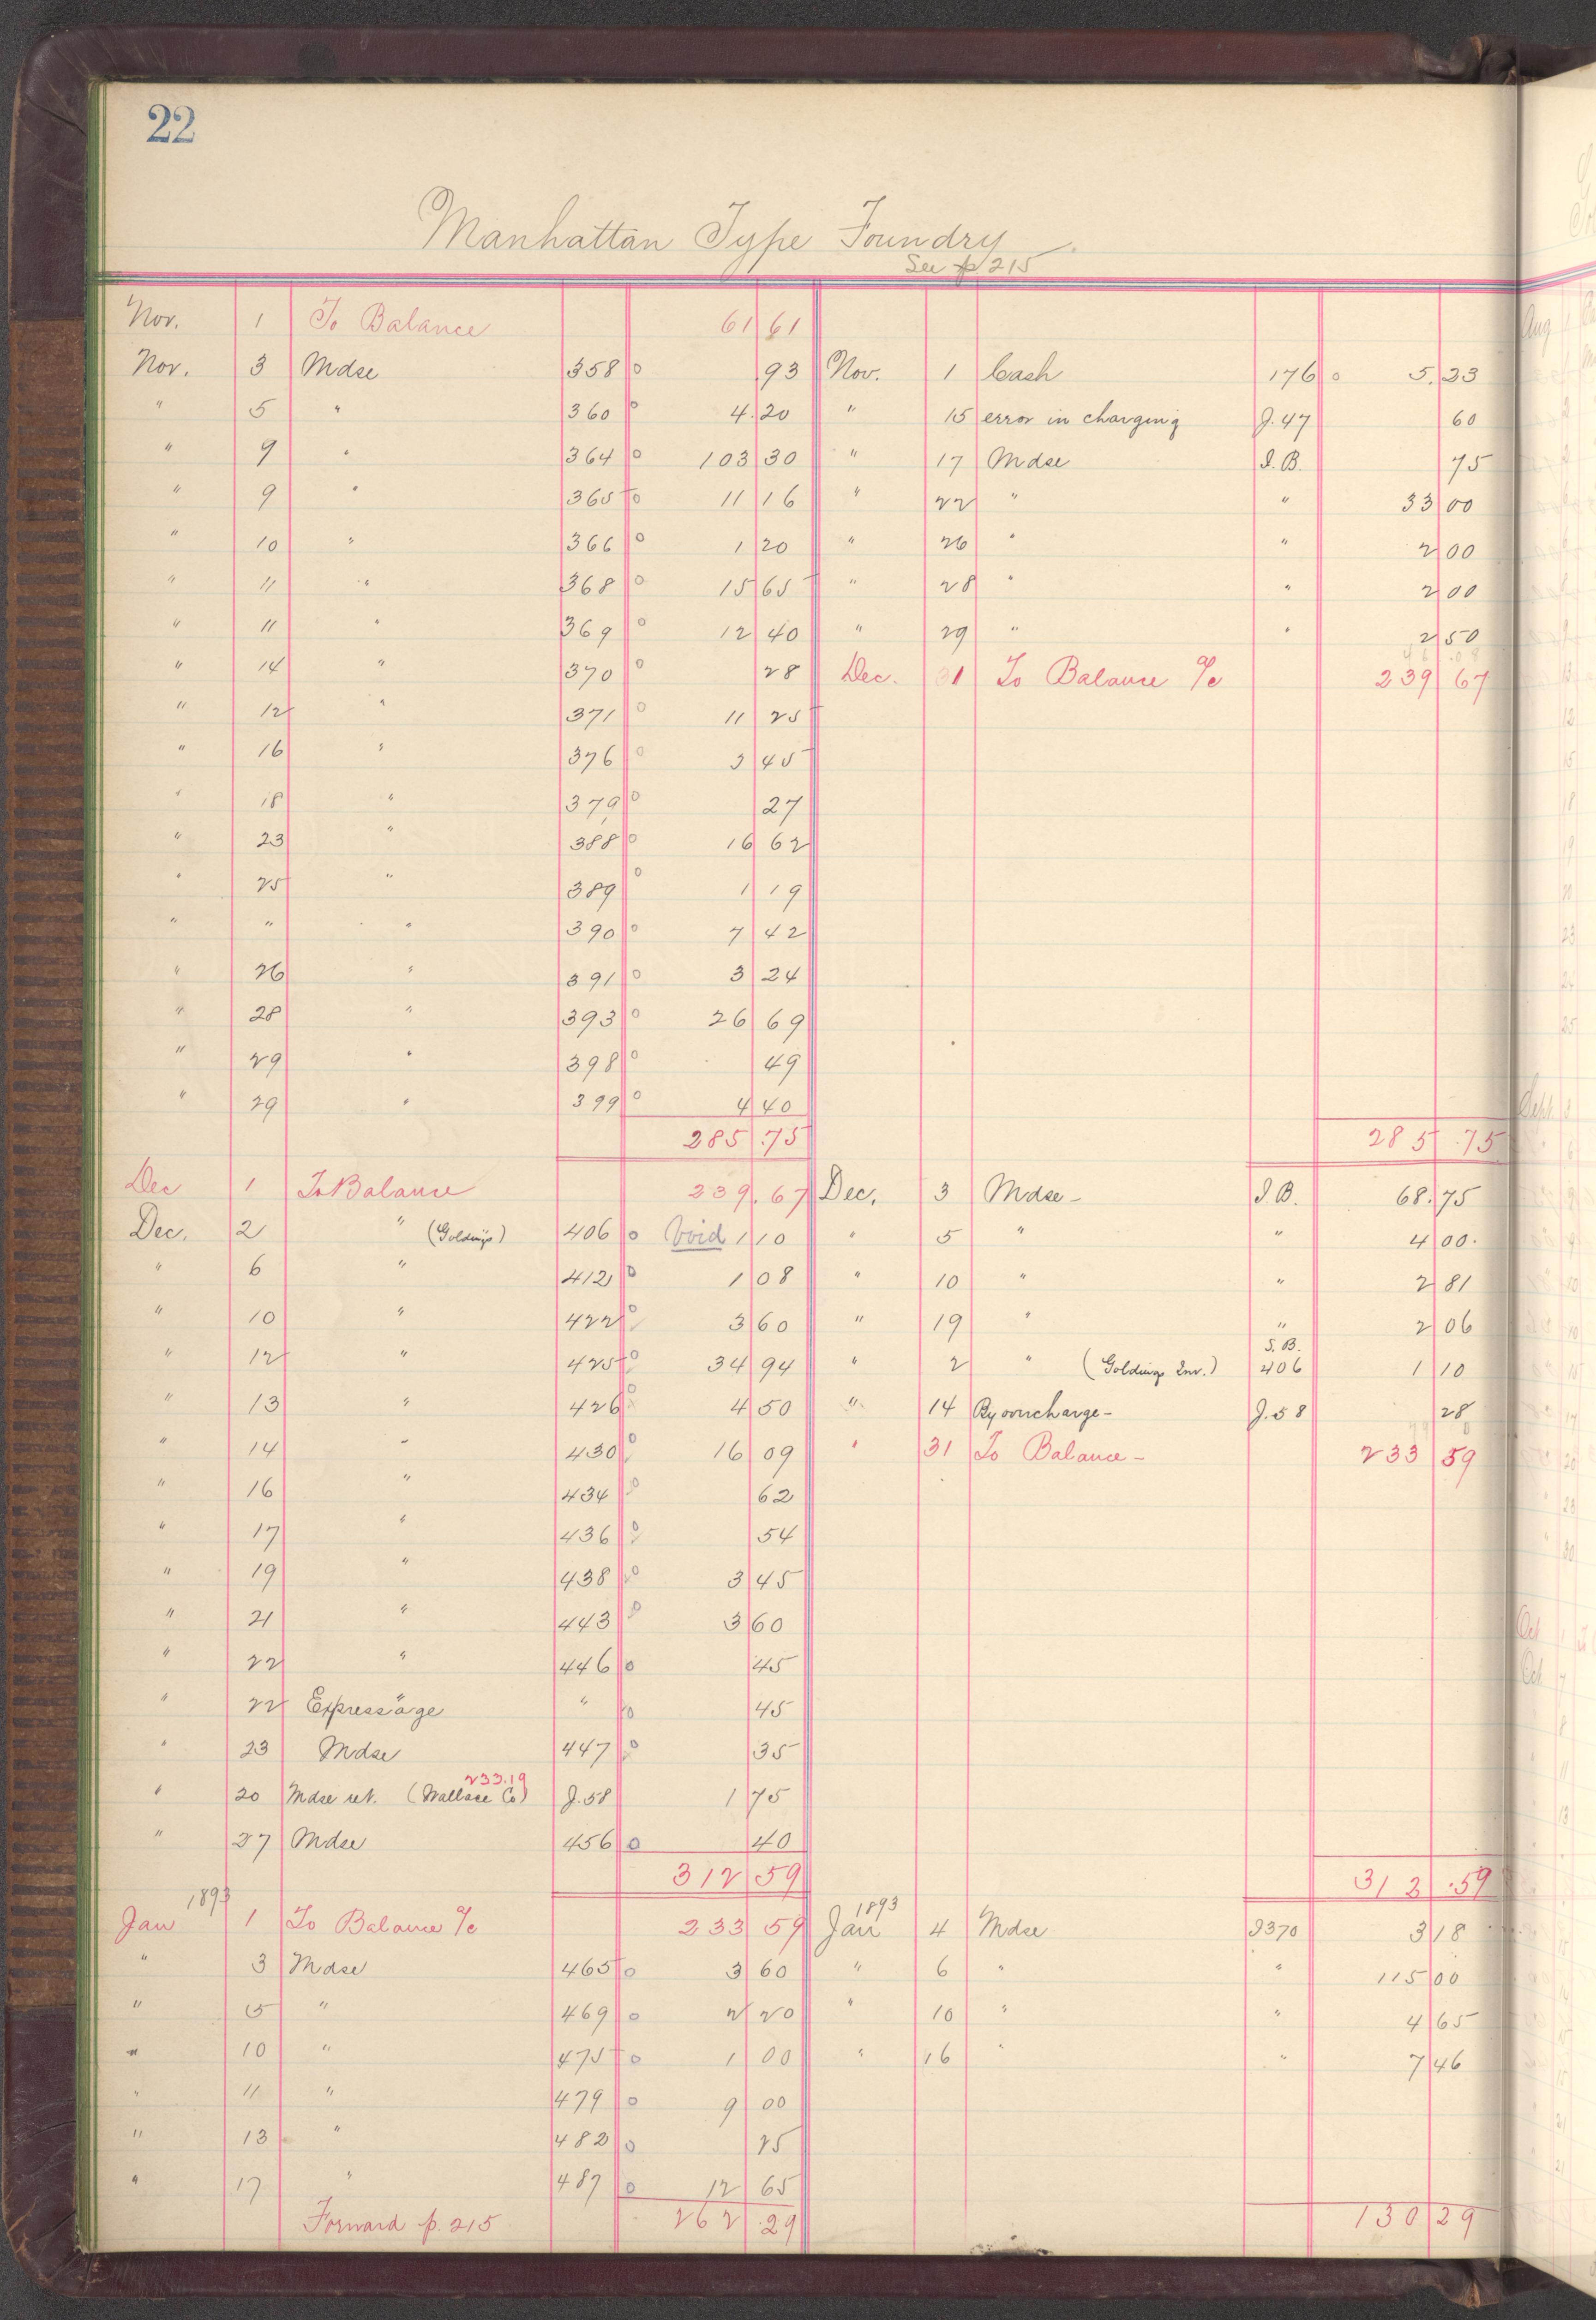 22
Manhattan Type Foundry
See p 215
Nov. 1 To Balance 61 61
Nov. 3 Mdse 358 0 93 Nov. 1 Cash 176 0 5.23
" 5 " 360 0 4.20 " 15 error in charging J.47 60
" 9 " 364 0 103 30 " 17 Mdse I.B. 75
" 9 " 365 0 11 16 " 22 " " 33 00
" 10 " 366 0 1 20 " 26 " " 2 00
" 11 " 368 0 15 65 " 28 " " 2 00
" 11 " 369 0 12 40 " 29 " " 2 50
" 14 " 370 0 28 Dec. 31 To Balance c/o 239 67
" 12 " 371 0 11 25
" 16 " 376 0 3 45
" 18 " 379 0 27
" 23 " 388 0 16 62
" 25 " 389 0 1 19
" " " 390 0 7 42
" 26 " 391 0 3 24
" 28 " 393 0 26 69
" 29 " 398 0 49
" 29 " 399 0 4 40
285.75 285.75
Dec 1 To Balance 239.67 Dec. 3 Mdse - I.B. 68.75
Dec. 2 " (Goldings) 406 0 Void 1 10 " 5 " " 4 00.
" 6 " 412 0 1 08 " 10 " " 2 81
" 10 " 422 0 3 60 " 19 " " 2 06
" 12 " 425 0 34 94 " 2 " (Goldings Inv.) S.B. 406 1 10
" 13 " 426 0 4 50 " 14 By overcharge - J.58 28
" 14 " 430 0 16 09 " 31 To Balance - 233 59
" 16 " 434 0 62
" 17 " 436 0 54
" 19 " 438 0 3 45
" 21 " 443 0 3 60
" 22 " 446 0 45
" 22 Expressage " 0 45
" 23 Mdse 447 0 35
233.19
" 20 Mdse ret. (Wallace Co) J.58 1 75
" 27 Mdse 456 0 40
312 59 312.59
1893 1893
Jan 1 To Balance c/o 233 59 Jan 4 Mdse I370 3 18
" 3 Mdse 465 0 3 60 " 6 " " 115 00
" 5 " 469 0 2 20 " 10 " " 4 65
" 10 " 475 0 1 00 " 16 " " 7 46
" 11 " 479 0 9 00
" 13 " 482 0 25
" 17 " 487 0 12 65
Forward p. 215 262.29 130 29